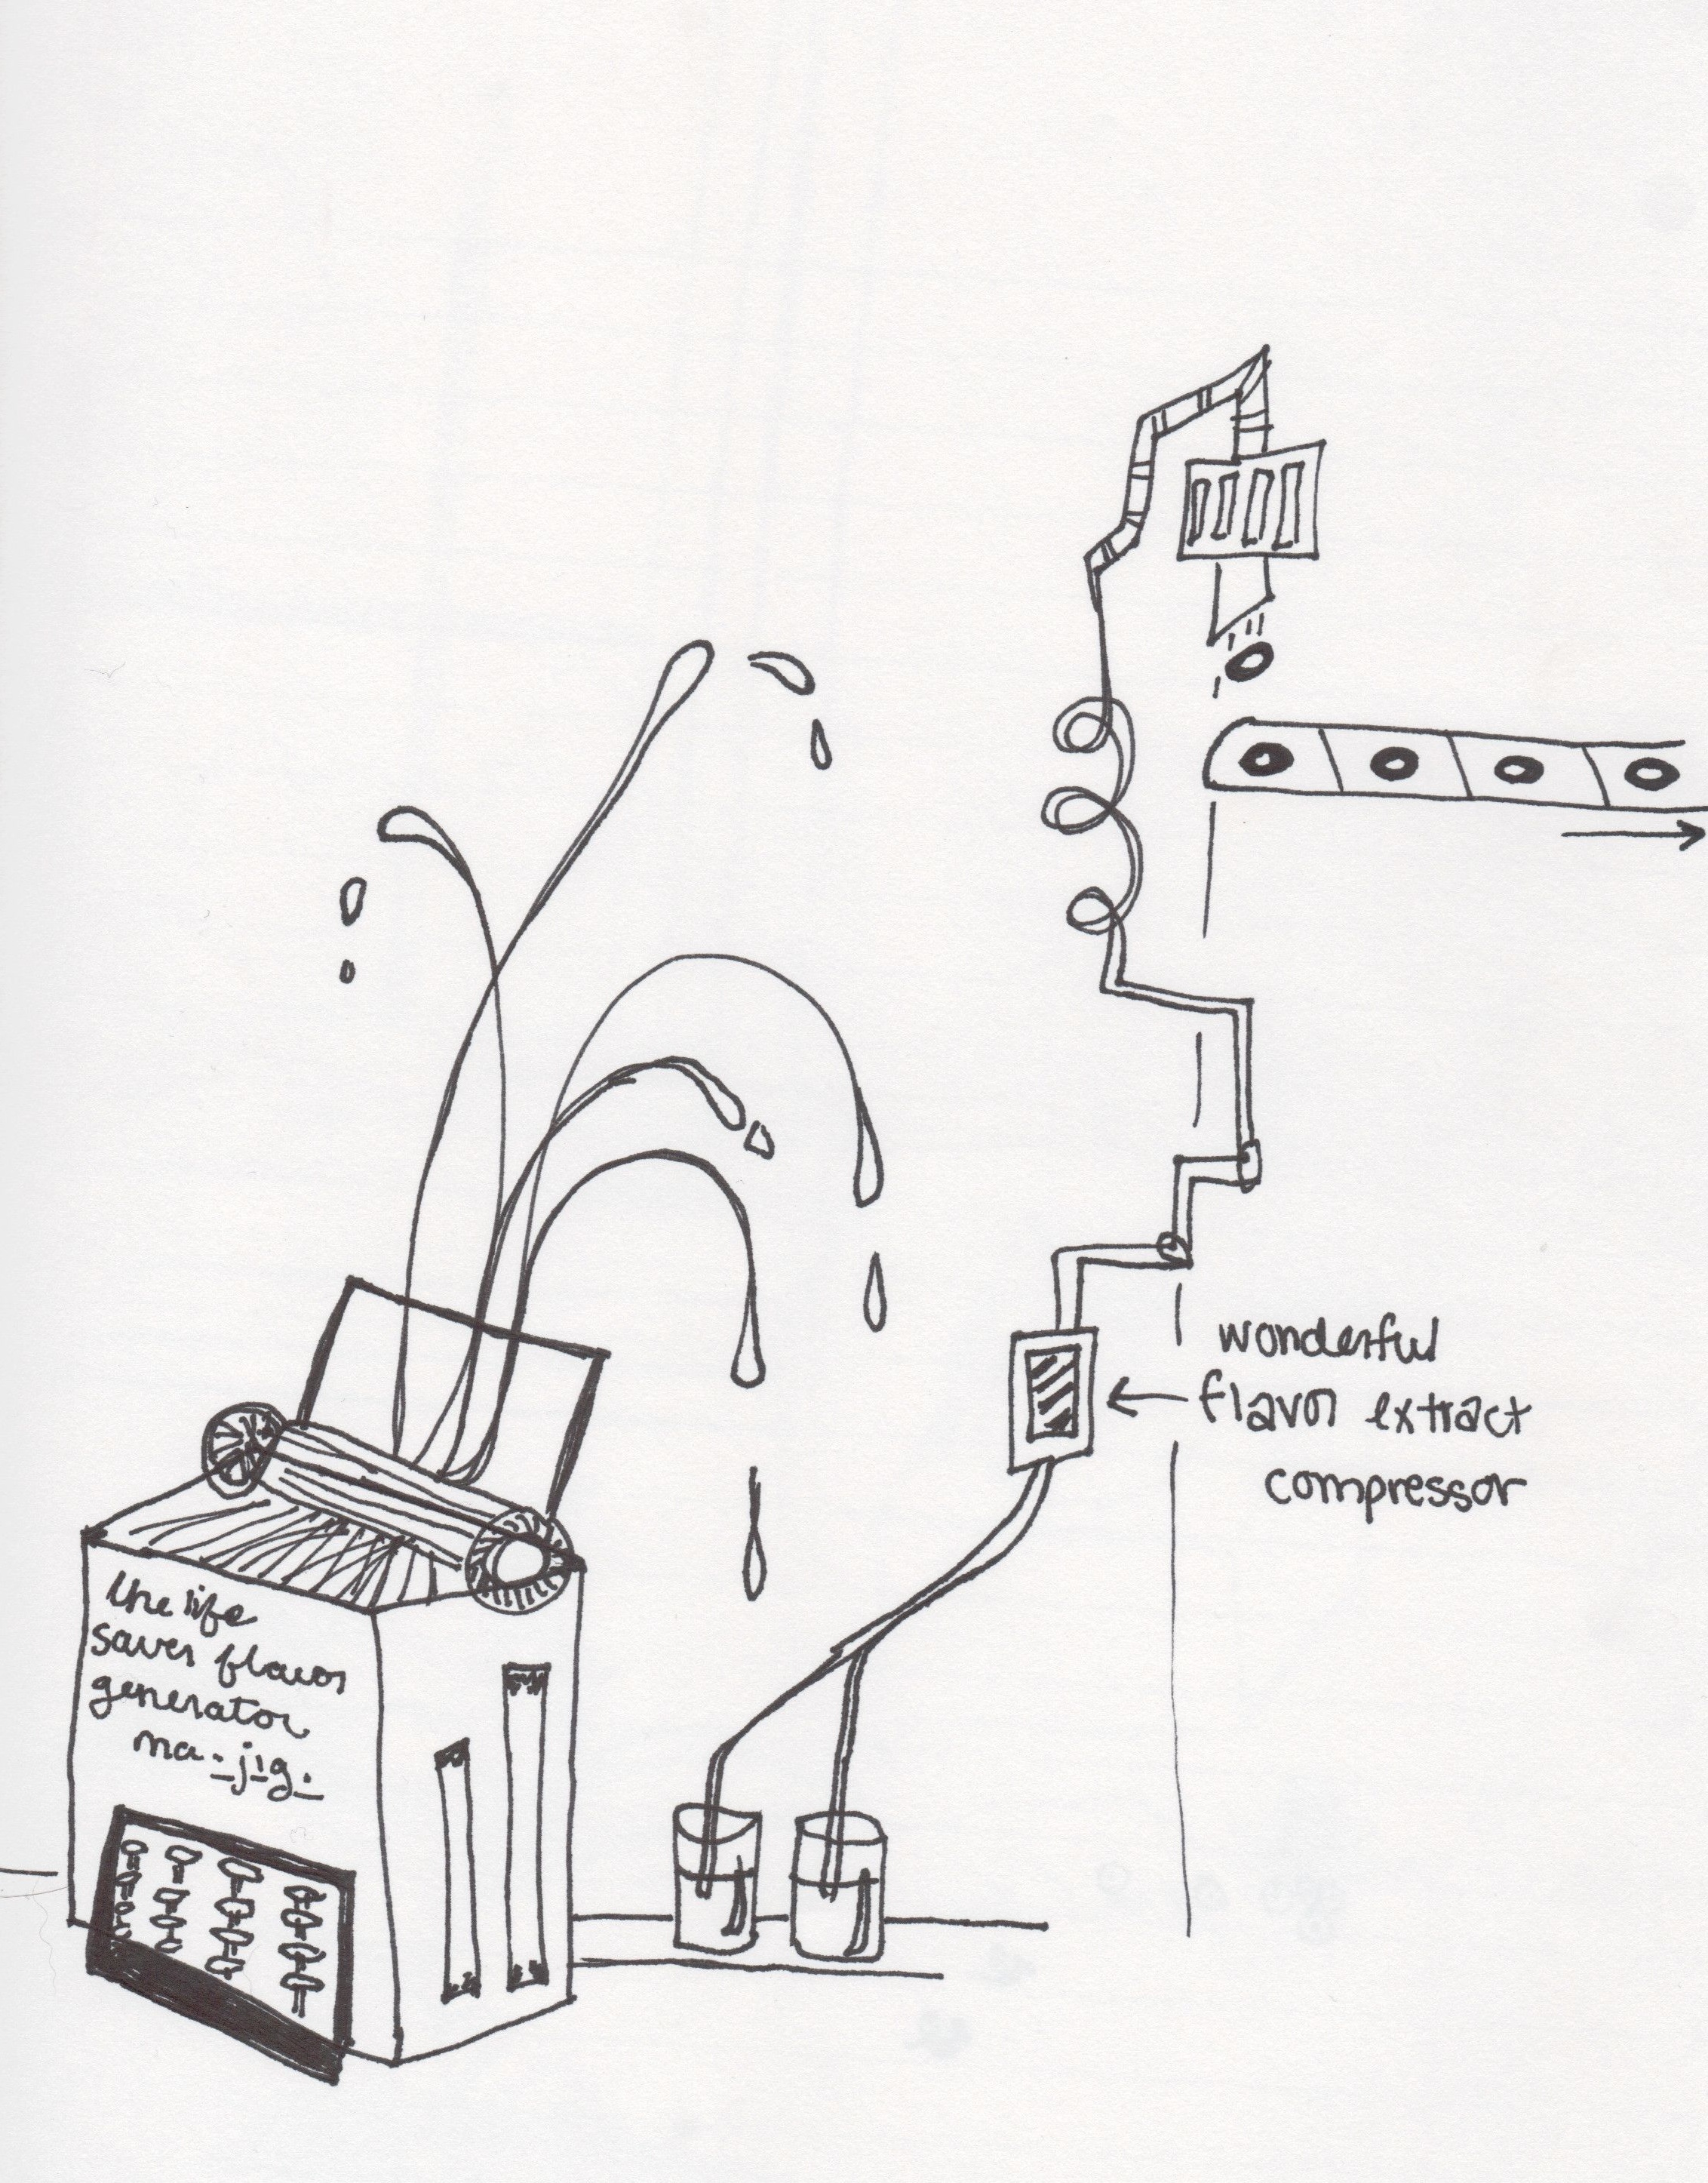 the life
saver flavor
generator
ma-jig.
wonderful
flavor extract
compressor